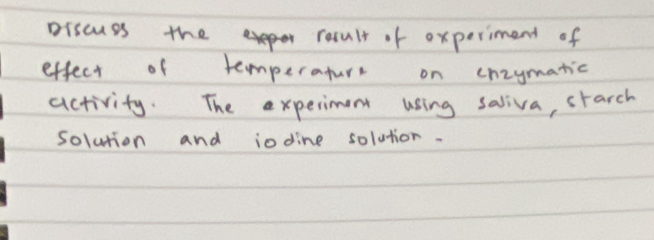 Discuss the result of experiment of
effect of temperature on enzymatic
activity. The experiment using saliva, starch
solution and iodine solution.